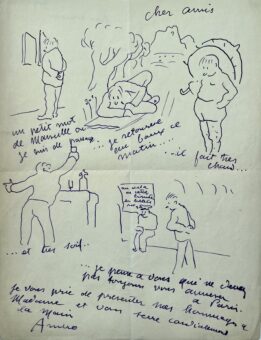 cher amis
un petit mot
de Marseille où
je suis de passage
... je retourne
aux baux ce
matin....
...il fait très
chaud...
... et très soif...
... je pense à vous qui ne devez
pas toujours vous amuser
à Paris.
Je vous prie de présenter mes hommages à
Madame et vous serre cordialement
la main